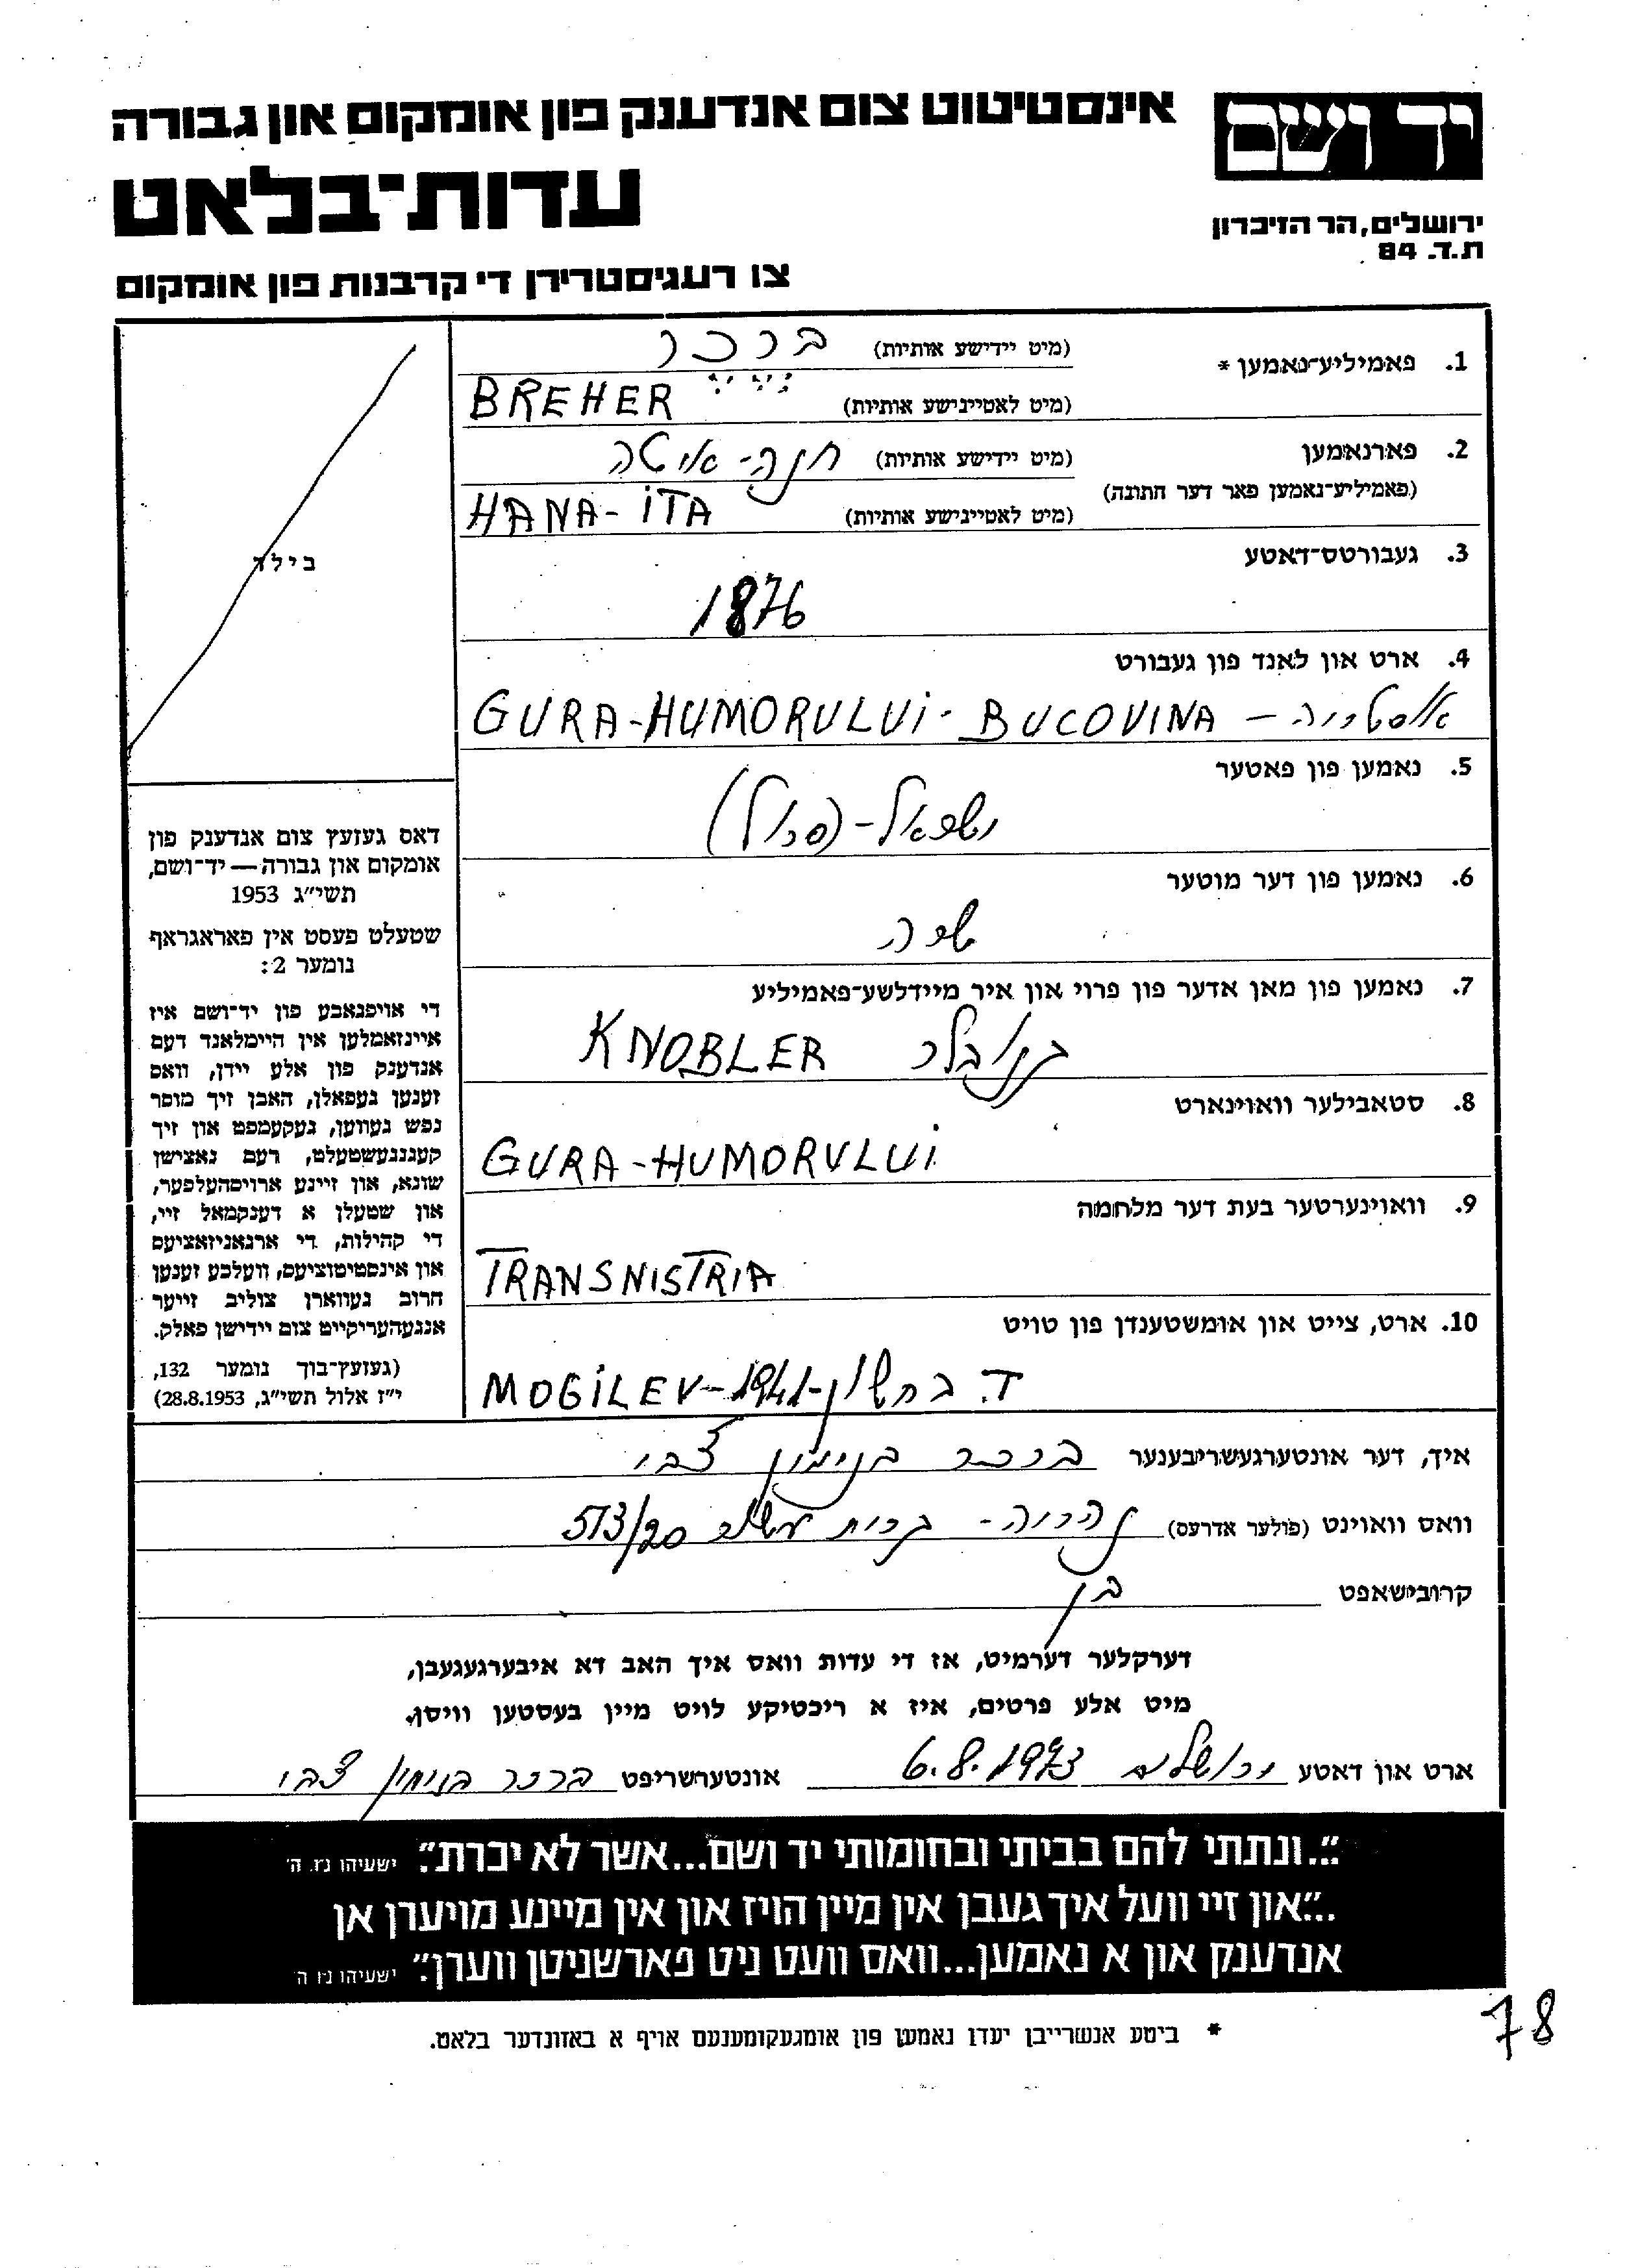 אינסטיטוט צום אנדענק פון אומקום און גבורה
יד ושם
עדות־בלאט
ירושלים, הר הזיכרון
ת.ד. 84
צו רעגיסטרירן די קרבנות פון אומקום
1. פאמיליע־נאמען * (מיט יידישע אותיות) ברכר
(מיט לאטיינישע אותיות) BREHER
2. פארנאמען (מיט יידישע אותיות) חנה-איטה
(פאמיליע־נאמען פאר דער חתונה) (מיט לאטיינישע אותיות) HANA-ITA
3. געבורטס־דאטע
1876
4. ארט און לאנד פון געבורט
GURA-HUMORULUI- BUCOVINA – אוסטריה
5. נאמען פון פאטער
6. נאמען פון דער מוטער
שרה
7. נאמען פון מאן אדער פון פרוי און איר מיידלשע־פאמיליע
KNOBLER קנובלר
8. סטאבילער וואוינארט
GURA-HUMORULUI
9. וואוינערטער בעת דער מלחמה
TRANSNISTRIA
10. ארט, צייט און אומשטענדן פון טויט
MOGILEV-1941- ד. בחשון
בילד
דאס געזעץ צום אנדענק פון
אומקום און גבורה — יד־ושם,
תשי״ג 1953
שטעלט פעסט אין פאראגראף
נומער 2:
די אויפגאבע פון יד־ושם איז
איינזאמלען אין היימלאנד דעם
אנדענק פון אלע יידן, וואס
זענען געפאלן, האבן זיך מוסר
נפש געווען, געקעמפט און זיך
קעגנגעשטעלט, דעם נאצישן
שונא, און זיינע ארויסהעלפער,
און שטעלן א דענקמאל זיי,
די קהילות, די ארגאניזאציעס
און אינסטיטוציעס, וועלכע זענען
חרוב געווארן צוליב זייער
אנגעהעריקייט צום יידישן פאלק.
(געזעץ־בוך נומער 132,
י״ז אלול תשי״ג, 28.8.1953)
איך, דער אונטערגעשריבענער ברכר בנימין צבי
וואס וואוינט (פולער אדרעס) נהריה - קרית 513/20
קרובישאפט בן
דערקלער דערמיט, אז די עדות וואס איך האב דא איבערגעגעבן,
מיט אלע פרטים, איז א ריכטיקע לויט מיין בעסטען וויסן.
ארט און דאטע ירושלים 6.8.1973 אונטערשריפט ברכר בנימין צבי
״...ונתתי להם בביתי ובחומותי יד ושם...אשר לא יכרת״. ישעיהו נ״ו, ה׳
...״און זיי וועל איך געבן אין מיין הויז און אין מיינע מויערן אן
אנדענק און א נאמען...וואס וועט ניט פארשניטן ווערן״. ישעיהו נ״ו ה׳
* ביטע אנשרייבן יעדן נאמען פון אומגעקומענעם אויף א באזונדער בלאט.
78